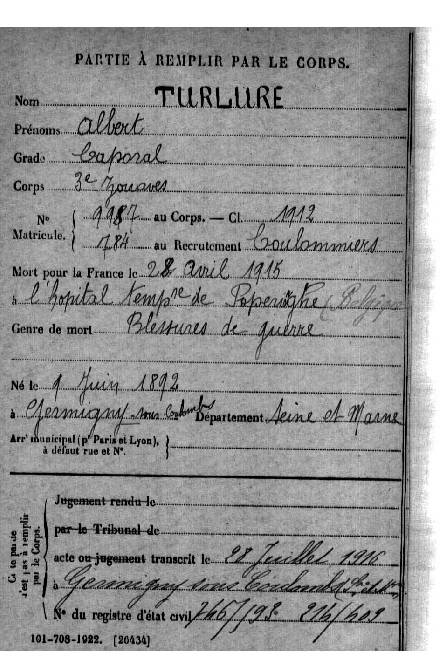 PARTIE À REMPLIR PAR LE CORPS.
Nom TURLURE
Prénoms Albert
Grade Caporal
Corps 3e Zouaves
N° Matricule. { 9987 au Corps. — Cl. 1912
784 au Recrutement Coulommiers
Mort pour la France le 28 Avril 1915
à l'hopital temp.re de Poperinghe (Belgique
Genre de mort Blessures de guerre
Né le 9 Juin 1892
à Germigny-sous-Coulombs Département Seine et Marne
Arr' municipal (p' Paris et Lyon), à défaut rue et N°. }
Cette partie n'est pas à remplir par le Corps.
Jugement rendu le
par le Tribunal de
acte ou jugement transcrit le 28 Juillet 1916
à Germigny sous Coulombs
N° du registre d'état civil
101-708-1922. [26434]